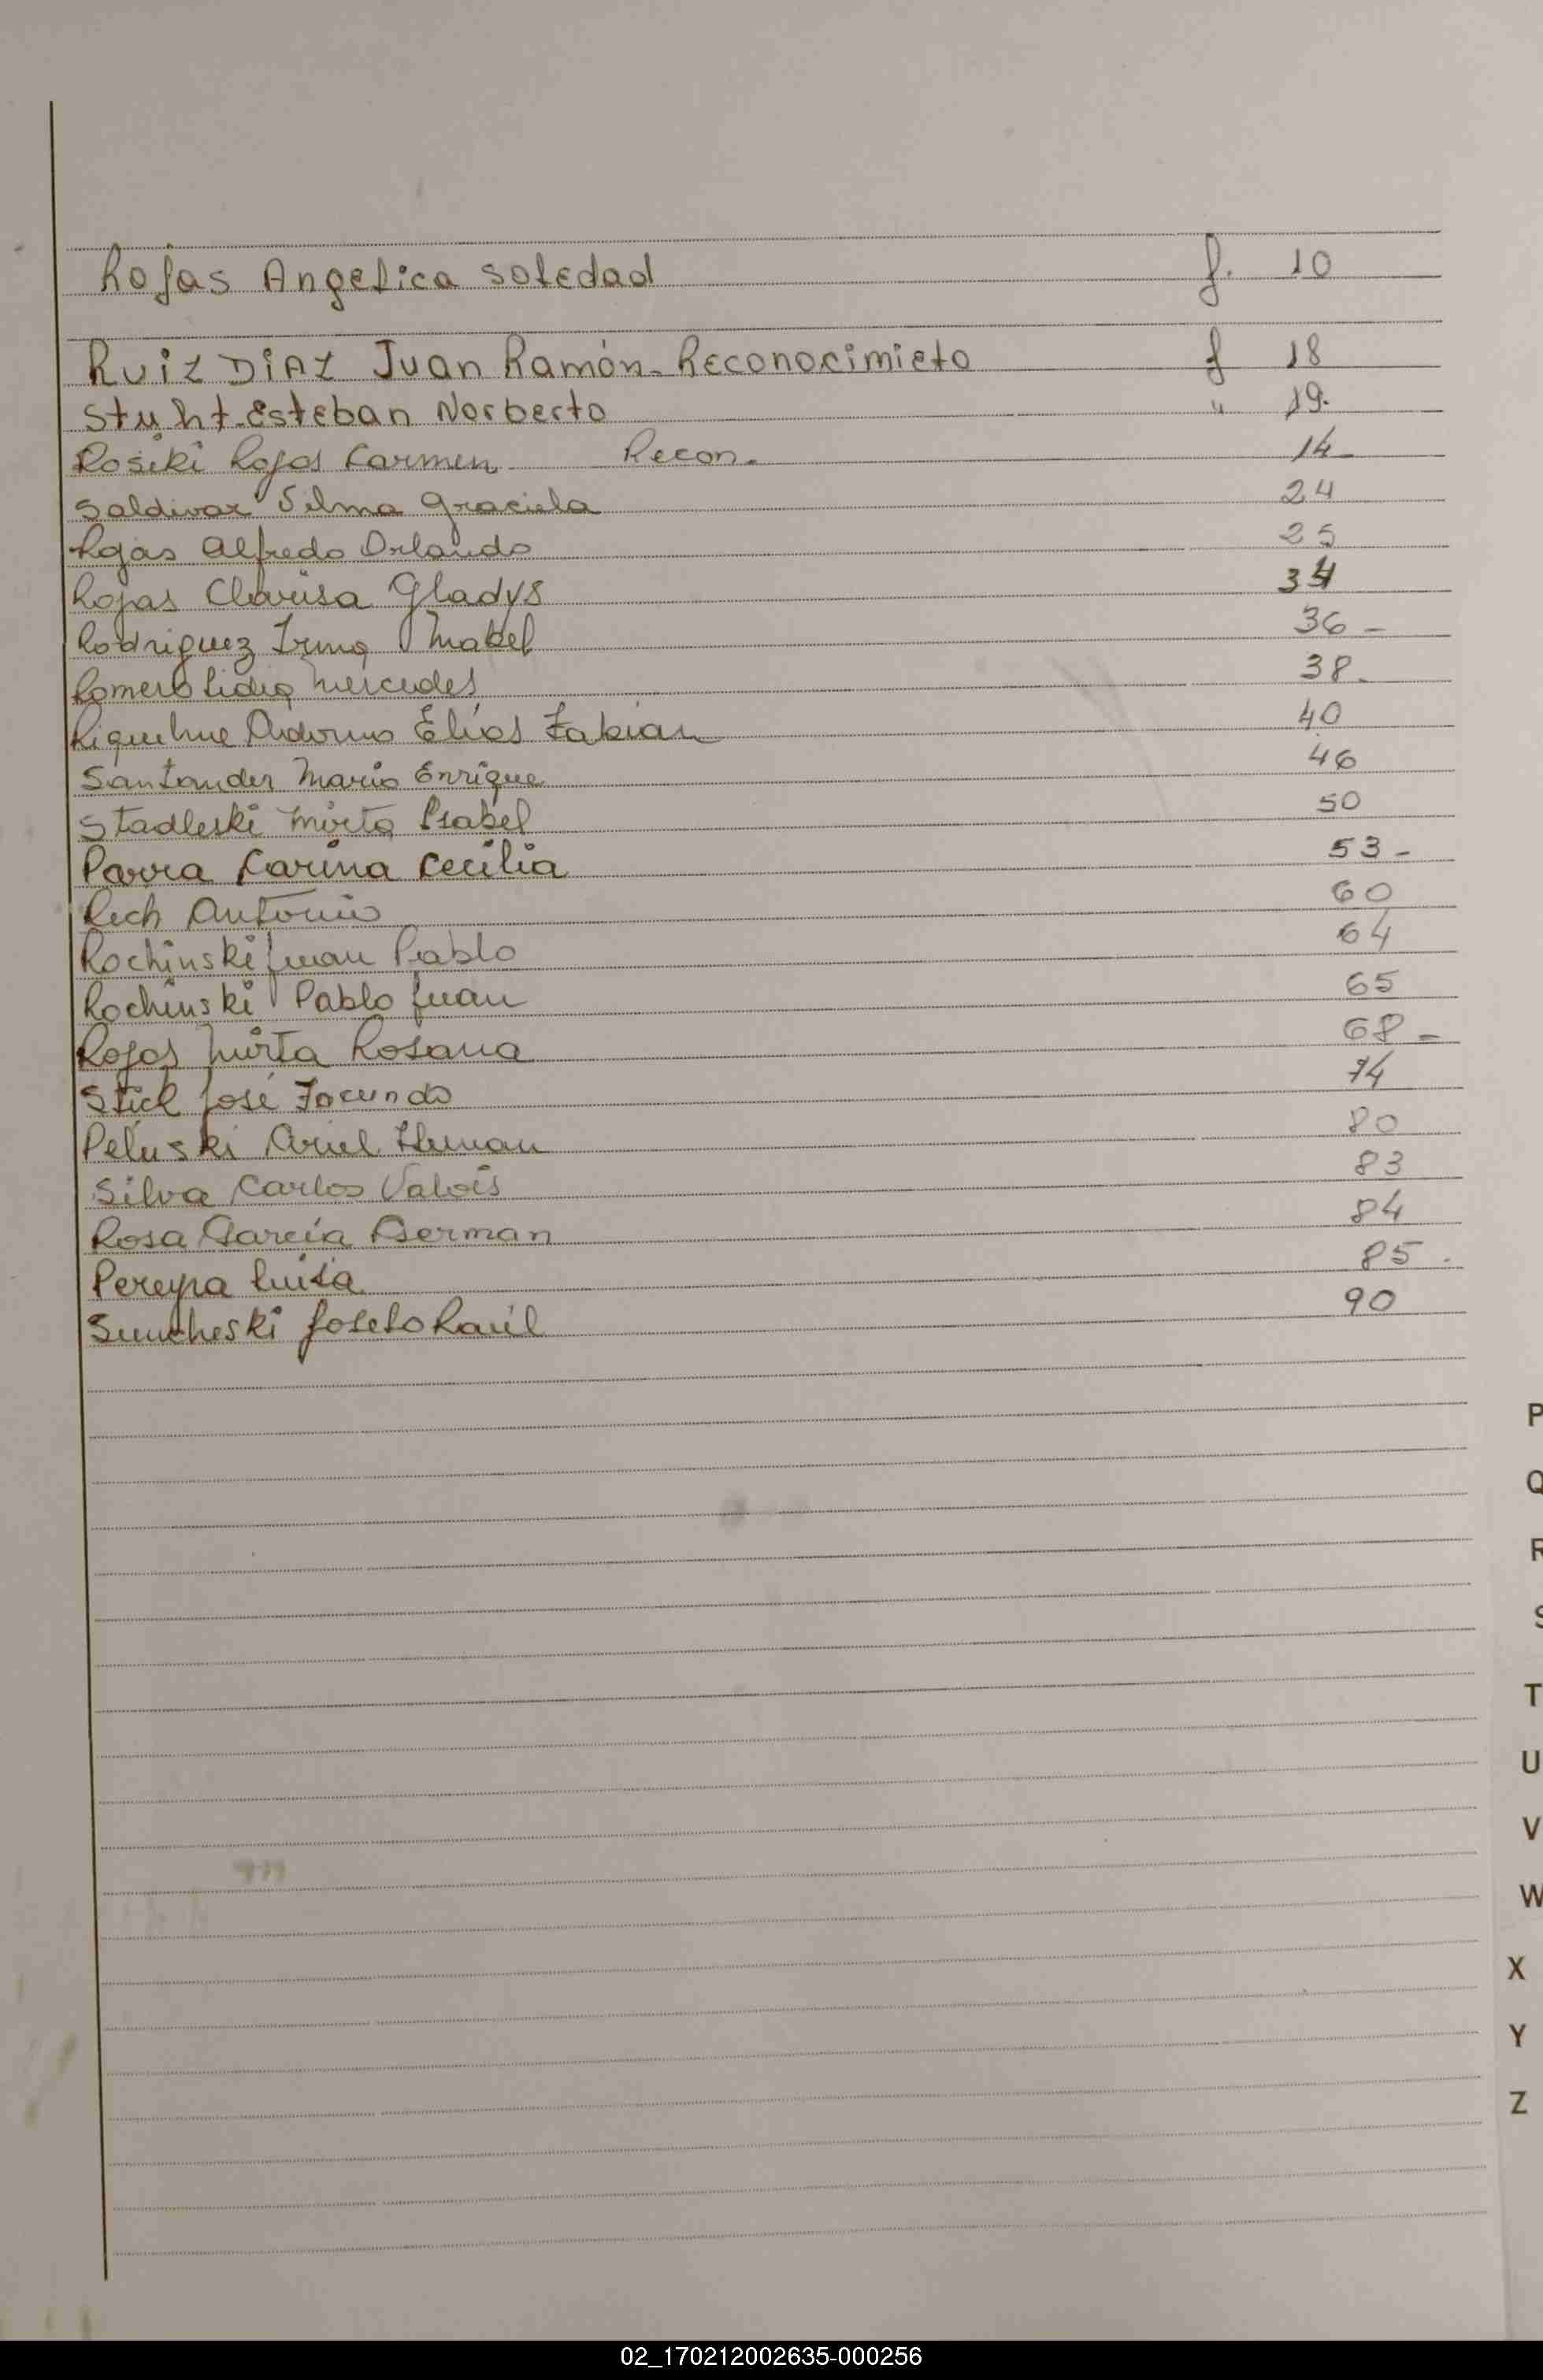 Rojas Angelica Soledad f. 10
Ruiz Diaz Juan Ramón - Reconocimieto f 18
Stuht Esteban Norberto " 19.
Rosiki Rojas Carmen Recon. 14
Saldivar Silma Graciela 24
Rojas Alfredo Orlando 25
Rojas Clarisa Gladys 34
Rodriguez Irma Mabel 36 -
Romero Lidia Mercedes 38.
Riquelme Adorno Elías Fabián 40
Santander Mario Enrique 46
Stadleski Mirta Isabel 50
Parra Carina Cecilia 53 -
Rech Antonio 60
Rochinski Juan Pablo 64
Rochinski Pablo Juan 65
Rojas Mirta Rosana 68 -
Stiel José Facundo 74
Peluski Ariel Hernan 80
Silva Carlos Valois 83
Rosa García German 84
Pereyra Luisa 85.
Raúl 90
P
Q
R
S
T
U
V
W
X
Y
Z
02_170212002635-000256